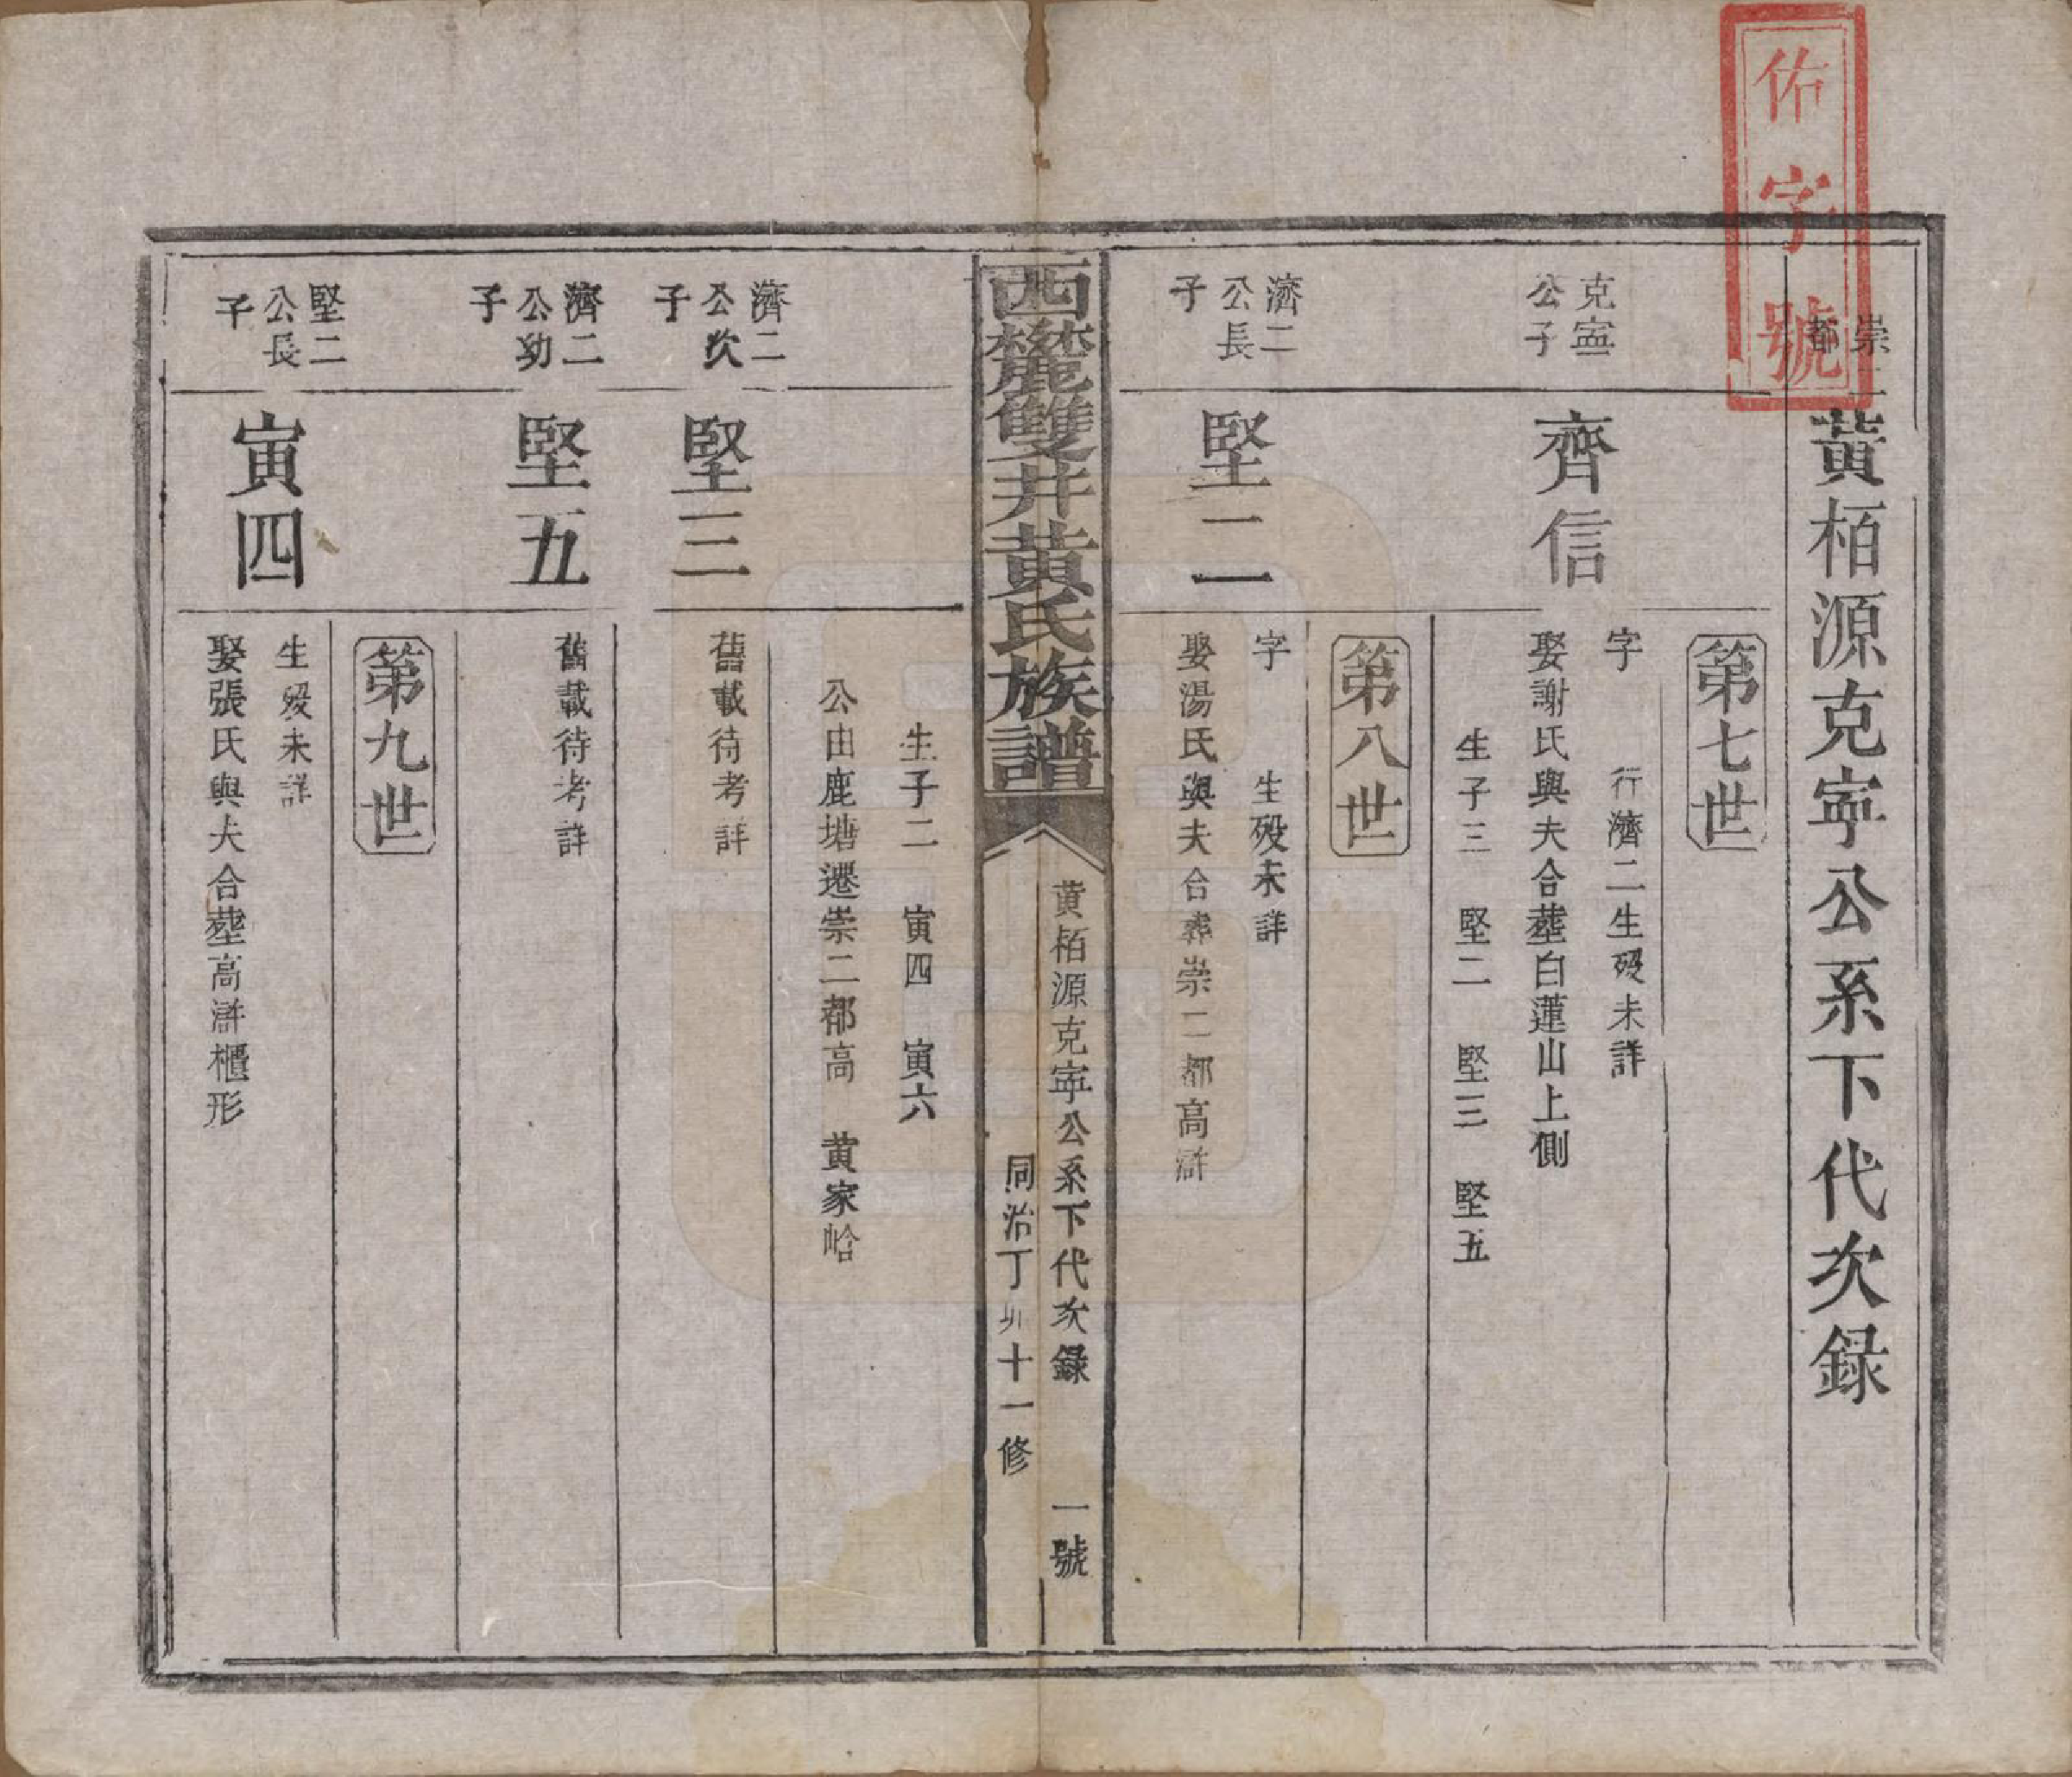 佑字號
崇二都
黃栢源克寧公系下代次錄
第七世
克寧公子
齊信
字 行濟二生殁未詳
娶謝氏與夫合塟白蓮山上側
生子三 堅二 堅三 堅五
第八世
濟二公長子
堅二
字 生殁未詳
娶湯氏與夫合葬崇二都高滸
西麓雙井黄氏族譜
黄栢源克寧公系下代次錄 一號
同治丁卯十一修
生子二 寅四 寅六
公由鹿塘遷崇二都高 黄家峆
濟二公次子
堅三
舊載待考詳
濟二公幼子
堅五
舊載待考詳
第九世
堅二公長子
寅四
生殁未詳
娶張氏與夫合塟高滸櫃形